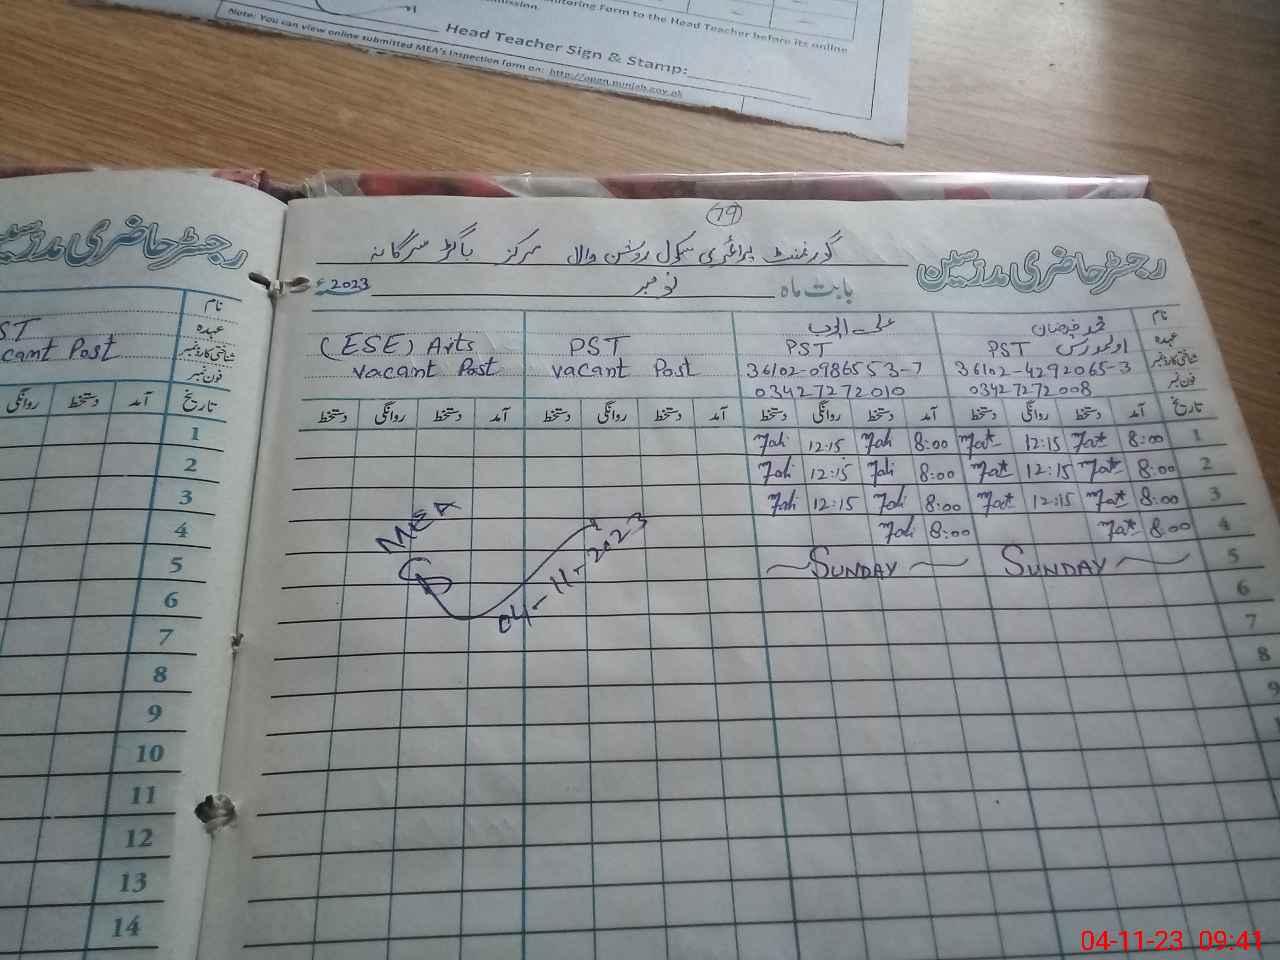 nitoring Form to the Head Teacher before its online
mission.
Head Teacher Sign & Stamp:
Note: You can view online submitted MEA's Inspection form on: http://open.punjab.gov.pk
79
گورنمنٹ پرائمری سکول روشن وال مرکز باگڑ سرگانہ
رجسٹر حاضری مدرسین
رجسٹر حاضری مدرسین
بابت ماہ نومبر 2023ء
نام
عہدہ PST PST PST (ESE) Arts
شناختی کارڈ نمبر 36102-4292065-3 36102-0986553-7 vacant Post vacant Post
فون نمبر 03427272008 03427272010
نام
عہدہ ST
شناختی کارڈ نمبر cant Post
فون نمبر
تاریخ آمد دستخط روانگی دستخط آمد دستخط روانگی دستخط آمد دستخط روانگی دستخط آمد دستخط روانگی دستخط
1 8:00 12:15 8:00 12:15
2 8:00 12:15 8:00 12:15
3 8:00 12:15 8:00 12:15
4 8:00 8:00
5 SUNDAY SUNDAY
6
7
8
9
MEA
04-11-2023
تاریخ آمد دستخط روانگی
1
2
3
4
5
6
7
8
9
10
11
12
13
14
04-11-23 09:41